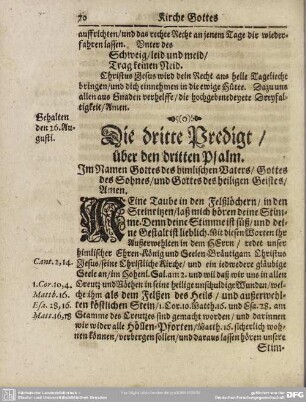 70 Kirche Gottes
auffrichten/und das rechte Recht an jenem Tage dir wieder-
fahren lassen. Unter des
Schweig/leid und meid/
Trag keinen Neid.
Christus Jesus wird dein Recht ans helle Tageliecht
bringen/und dich einnehmen in die ewige Hütte. Dazu uns
allen aus Gnaden verhelffe/die hochgebenedeyete Dreyfal-
tigkeit/Amen.
Gehalten
den 26. Au-
gusti.
Die dritte Predigt/
über den dritten Psalm.
Im Namen Gottes des himlischen Vaters/Gottes
des Sohnes/und Gottes des heiligen Geistes/
Amen.
Meine Taube in den Felßlöchern/in den
Steinritzen/laß mich hören deine Stim-
me. Denn deine Stimme ist süß/und dei-
ne Gestalt ist lieblich. Mit diesen Worten ihr
Außerwehlten in dem HErrn/redet unser
himlischer Ehren-König und Seelen-Bräutigam Christus
Cant. 2, 14. Jesus/seine Christliche Kirche/und ein iedwedere gläubige
Seele an/im Hohenl. Sal. am 2. und wil daß wir uns in allen
1. Cor. 10, 4. Creutz und Nöthen in seine heilige unschuldige Wunden/wel-
Matth. 16. che ihm als dem Felsen des Heils/und außerwehl-
Esa. 28, 16. ten köstlichen Stein/1. Cor. 10. Matth. 16. und Esa. 28. am
Matt. 16, 18 Stamme des Creutzes sind gemacht worden/und darinnen
wir wider alle Höllen-Pforten/Matth. 16. sicherlich woh-
nen können/verbergen sollen/und daraus lassen hören unsere
Stim-